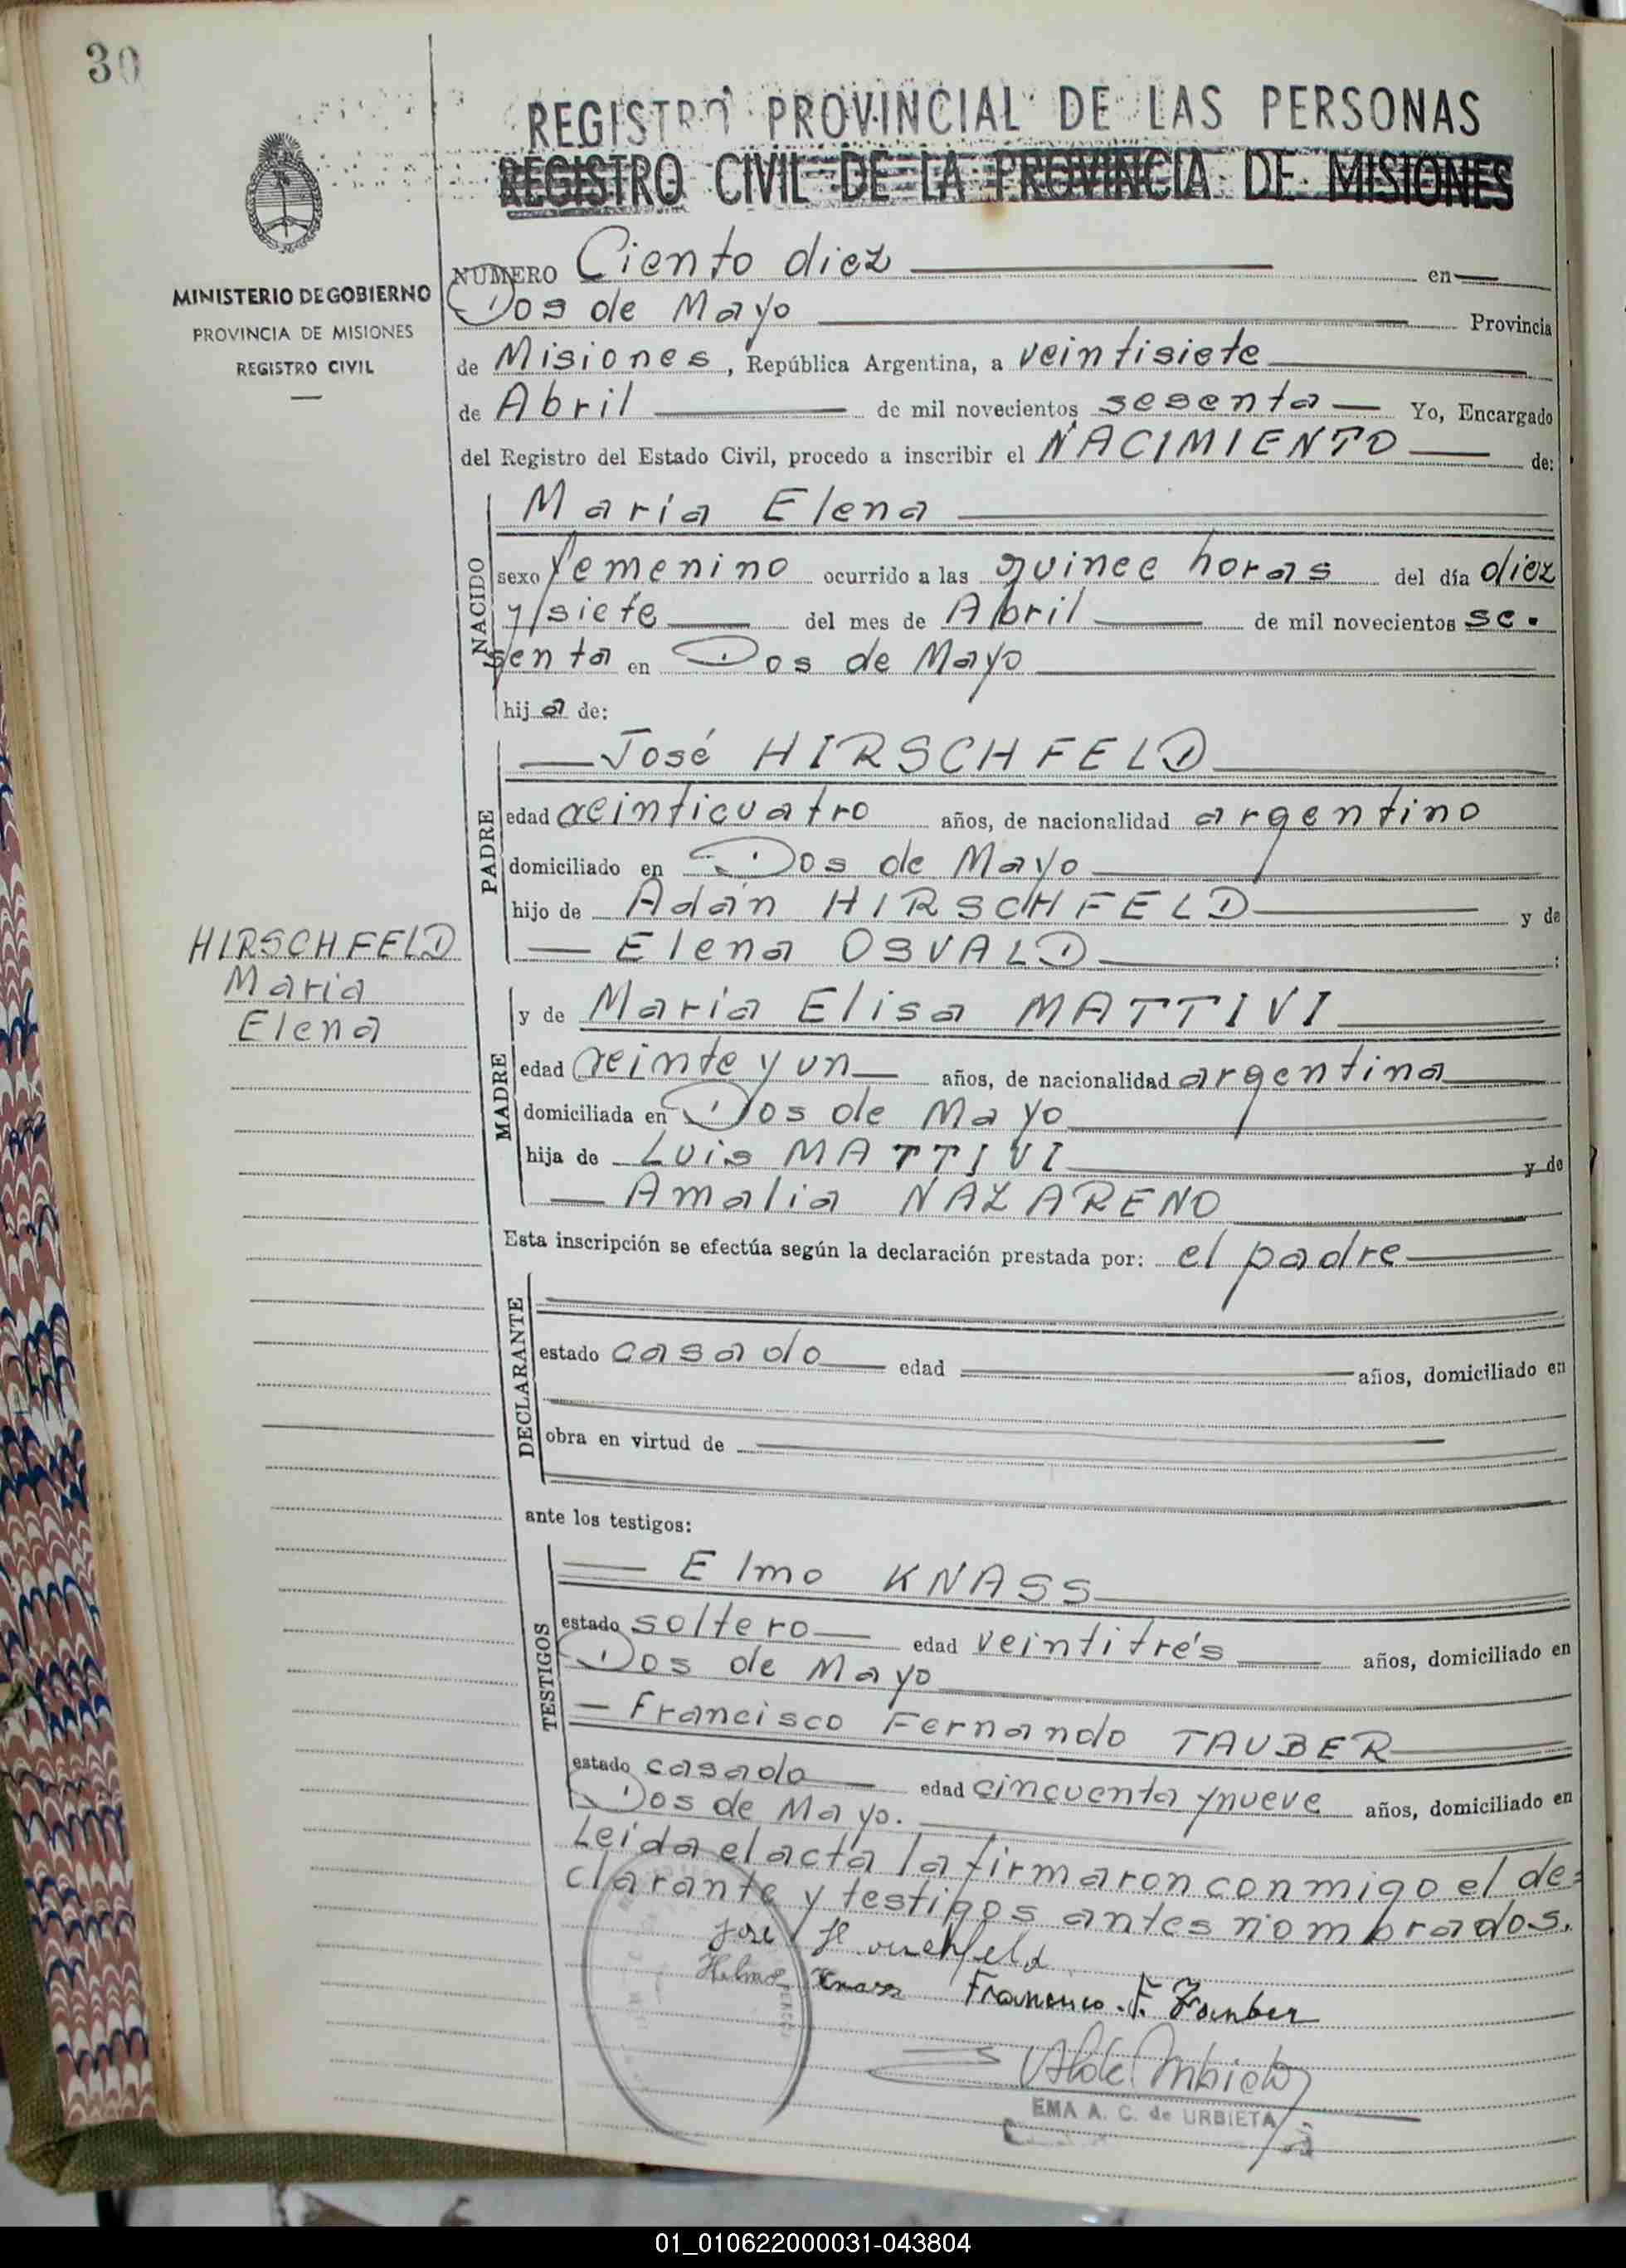 30
REGISTRO PROVINCIAL DE LAS PERSONAS
REGISTRO CIVIL DE LA PROVINCIA DE MISIONES
MINISTERIO DE GOBIERNO
PROVINCIA DE MISIONES
REGISTRO CIVIL
NUMERO Ciento diez en
Dos de Mayo Provincia
de Misiones, República Argentina, a veintisiete
de Abril de mil novecientos sesenta Yo, Encargado
del Registro del Estado Civil, procedo a inscribir el NACIMIENTO de:
NACIDO
María Elena
sexo femenino ocurrido a las quince horas del día diez
y siete del mes de Abril de mil novecientos se-
senta en Dos de Mayo
hija de:
PADRE
José HIRSCHFELD
edad veinticuatro años, de nacionalidad argentino
domiciliado en Dos de Mayo
hijo de Adán HIRSCHFELD y de
Elena OSVALD;
HIRSCHFELD
Maria
Elena
MADRE
y de María Elisa MATTIVI
edad veinte y un años, de nacionalidad argentina
domiciliada en Dos de Mayo
hija de Luis MATTIVI y de
Amalia NAZARENO
Esta inscripción se efectúa según la declaración prestada por: el padre
DECLARANTE
estado casado edad años, domiciliado en
obra en virtud de
ante los testigos:
TESTIGOS
Elmo KNASS
estado soltero edad veintitrés años, domiciliado en
Dos de Mayo
Francisco Fernando TAUBER
estado casado edad cincuenta y nueve años, domiciliado en
Dos de Mayo.
Leida el acta la firmaron conmigo el de=
clarante y testigos antes nombrados.
José Hirschfeld
Helmo Knass Francisco. F. Tauber
EMA A. C. de URBIETA
01_010622000031-043804